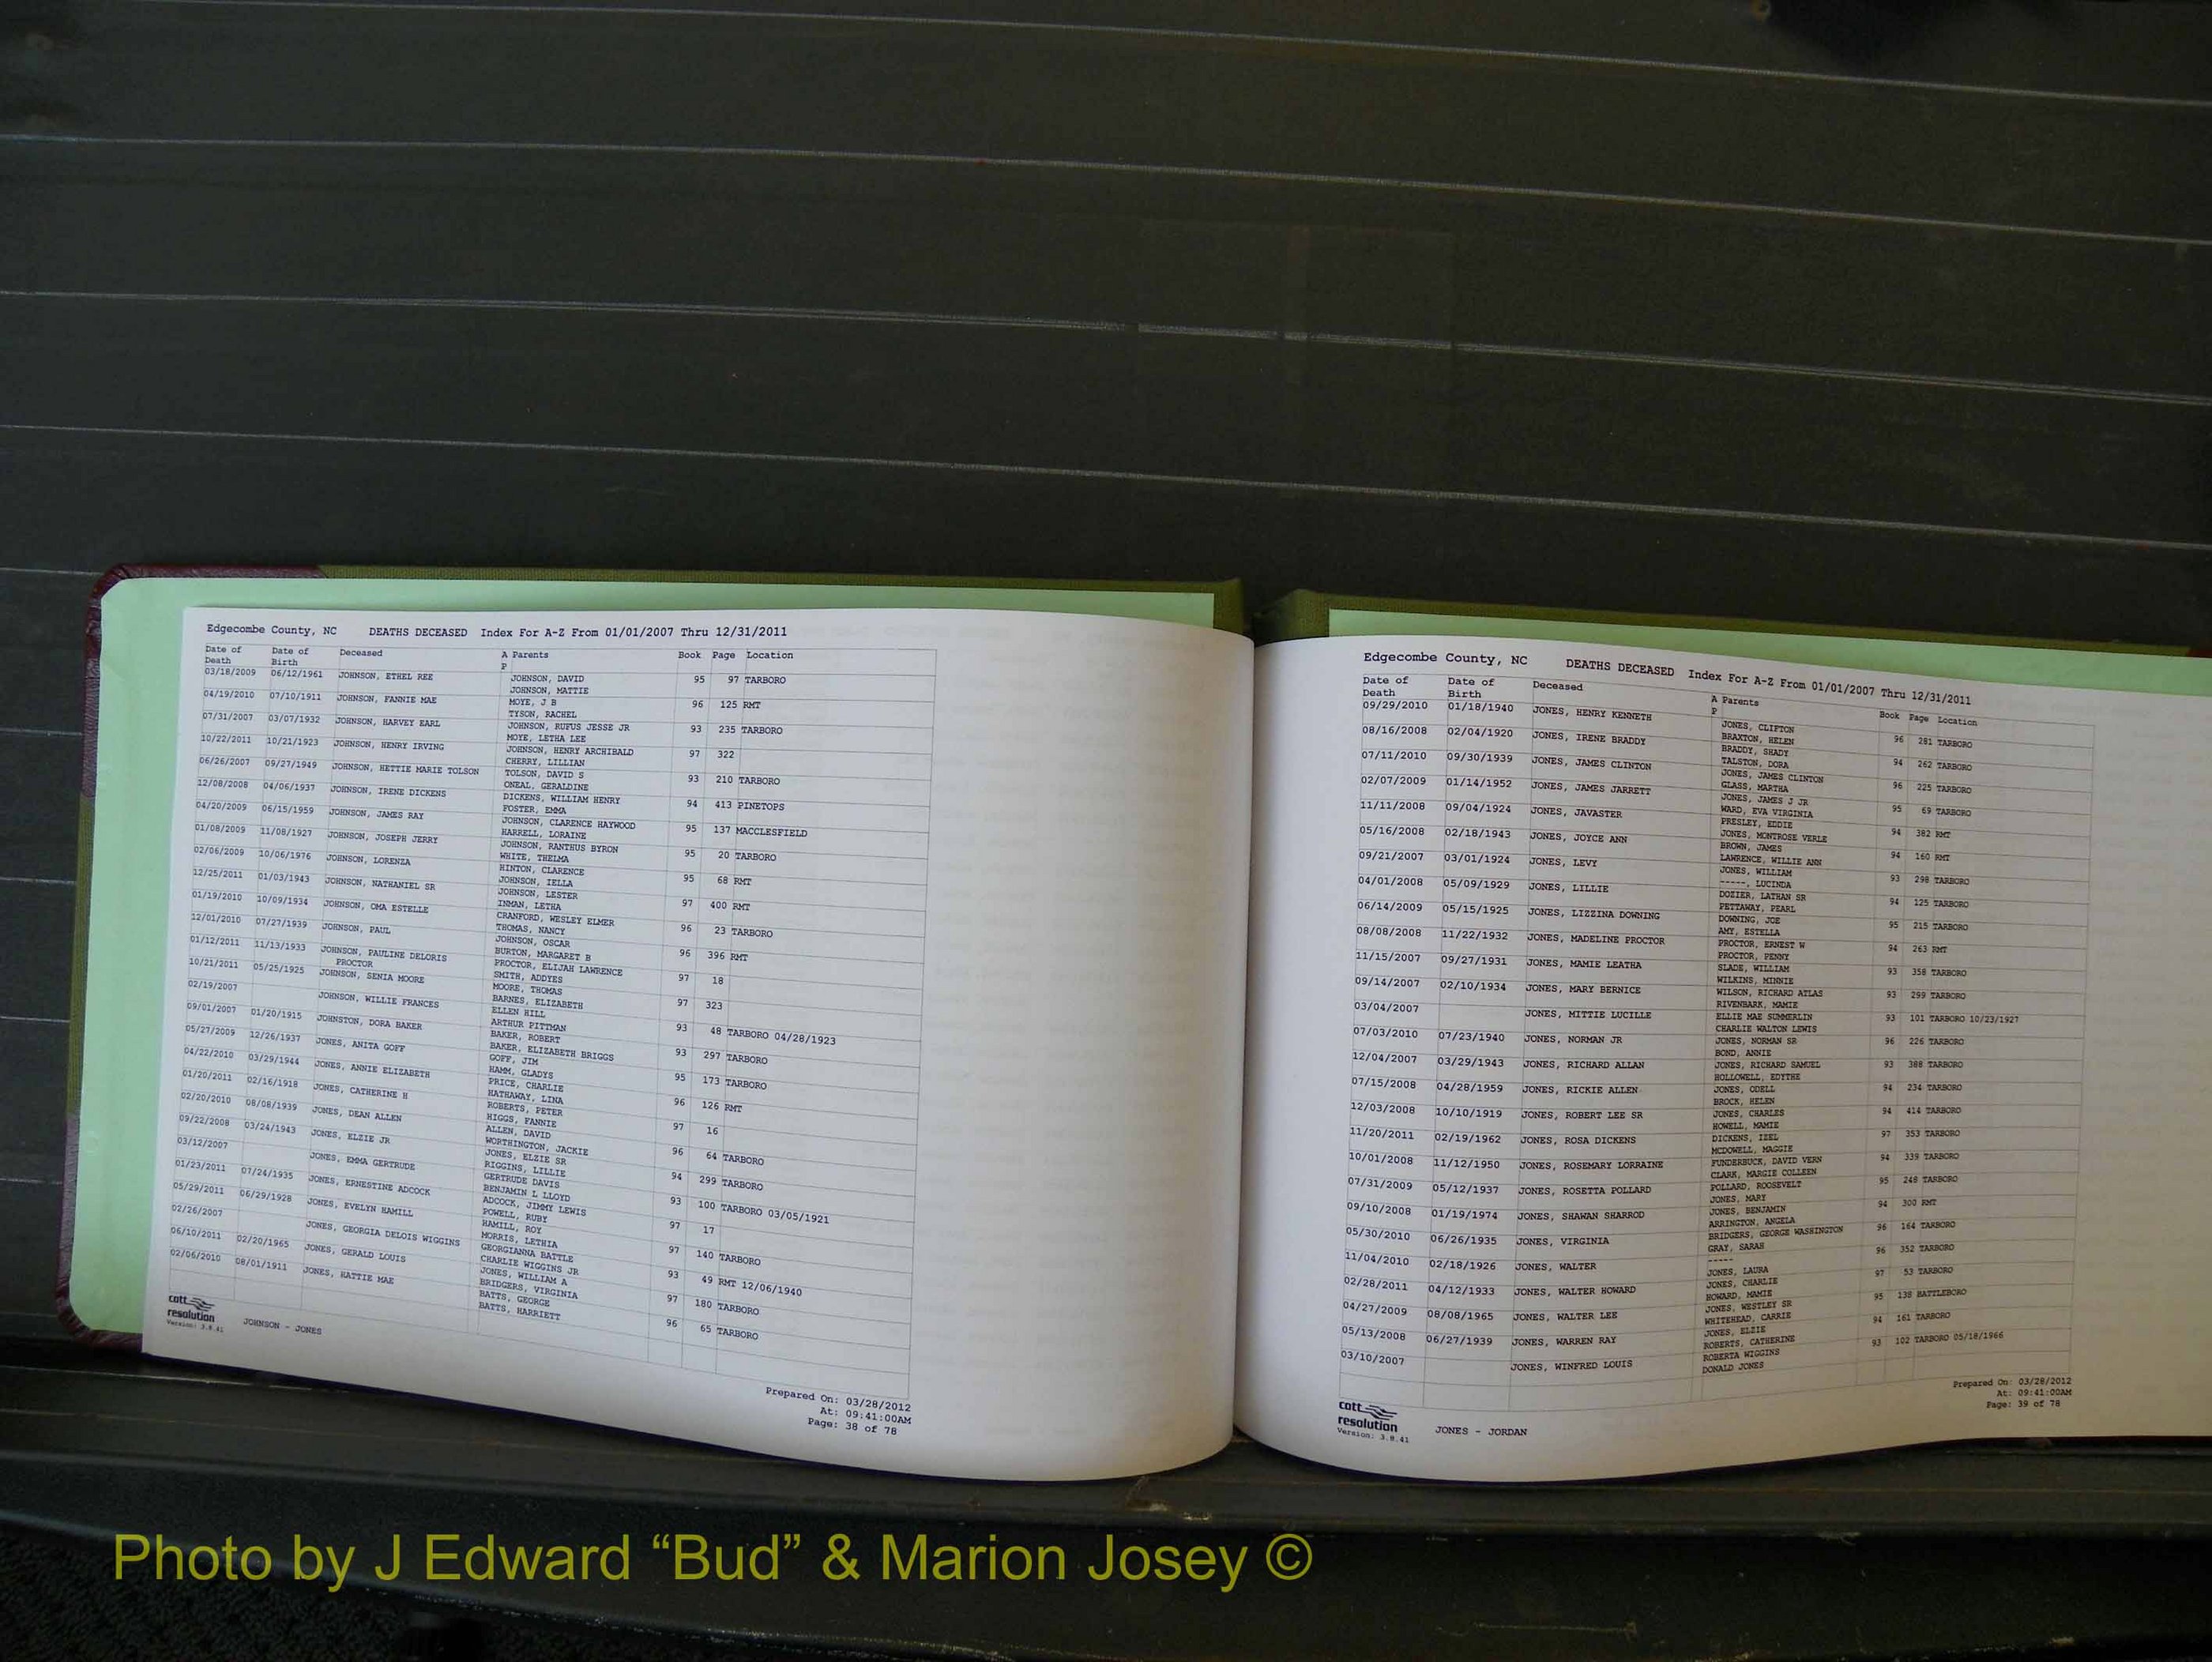 Edgecombe County, NC DEATHS DECEASED Index For A-Z From 01/01/2007 Thru 12/31/2011
Date of Date of Deceased A Parents Book Page Location
Death Birth P
03/18/2009 06/12/1961 JOHNSON, ETHEL REE JOHNSON, DAVID 95 97 TARBORO
JOHNSON, MATTIE
04/19/2010 07/10/1911 JOHNSON, FANNIE MAE MOYE, J B 96 125 RMT
TYSON, RACHEL
07/31/2007 03/07/1932 JOHNSON, HARVEY EARL JOHNSON, RUFUS JESSE JR 93 235 TARBORO
MOYE, LETHA LEE
10/22/2011 10/21/1923 JOHNSON, HENRY IRVING JOHNSON, HENRY ARCHIBALD 97 322
CHERRY, LILLIAN
06/26/2007 09/27/1949 JOHNSON, HETTIE MARIE TOLSON TOLSON, DAVID S 93 210 TARBORO
ONEAL, GERALDINE
12/08/2008 04/06/1937 JOHNSON, IRENE DICKENS DICKENS, WILLIAM HENRY 94 413 PINETOPS
FOSTER, EMMA
04/20/2009 06/15/1959 JOHNSON, JAMES RAY JOHNSON, CLARENCE HAYWOOD 95 137 MACCLESFIELD
HARRELL, LORAINE
01/08/2009 11/08/1927 JOHNSON, JOSEPH JERRY JOHNSON, RANTHUS BYRON 95 20 TARBORO
WHITE, THELMA
02/06/2009 10/06/1976 JOHNSON, LORENZA HINTON, CLARENCE 95 68 RMT
JOHNSON, IELLA
12/25/2011 01/03/1943 JOHNSON, NATHANIEL SR JOHNSON, LESTER 97 400 RMT
INMAN, LETHA
01/19/2010 10/09/1934 JOHNSON, OMA ESTELLE CRANFORD, WESLEY ELMER 96 23 TARBORO
THOMAS, NANCY
12/01/2010 07/27/1939 JOHNSON, PAUL JOHNSON, OSCAR 96 396 RMT
BURTON, MARGARET B
01/12/2011 11/13/1933 JOHNSON, PAULINE DELORIS PROCTOR, ELIJAH LAWRENCE 97 18
PROCTOR SMITH, ADDYES
10/21/2011 05/25/1925 JOHNSON, SENIA MOORE MOORE, THOMAS 97 323
BARNES, ELIZABETH
02/19/2007 JOHNSON, WILLIE FRANCES ELLEN HILL 93 48 TARBORO 04/28/1923
ARTHUR PITTMAN
09/01/2007 01/20/1915 JOHNSTON, DORA BAKER BAKER, ROBERT 93 297 TARBORO
BAKER, ELIZABETH BRIGGS
05/27/2009 12/26/1937 JONES, ANITA GOFF GOFF, JIM 95 173 TARBORO
HAMM, GLADYS
04/22/2010 03/29/1944 JONES, ANNIE ELIZABETH PRICE, CHARLIE 96 126 RMT
HATHAWAY, LINA
01/20/2011 02/16/1918 JONES, CATHERINE H ROBERTS, PETER 97 16
HIGGS, FANNIE
02/20/2010 08/08/1939 JONES, DEAN ALLEN ALLEN, DAVID 96 64 TARBORO
WORTHINGTON, JACKIE
09/22/2008 03/24/1943 JONES, ELZIE JR JONES, ELZIE SR 94 299 TARBORO
RIGGINS, LILLIE
03/12/2007 JONES, EMMA GERTRUDE GERTRUDE DAVIS 93 100 TARBORO 03/05/1921
BENJAMIN L LLOYD
01/23/2011 07/24/1935 JONES, ERNESTINE ADCOCK ADCOCK, JIMMY LEWIS 97 17
POWELL, RUBY
05/29/2011 06/29/1928 JONES, EVELYN HAMILL HAMILL, ROY 97 140 TARBORO
MORRIS, LETHIA
02/26/2007 JONES, GEORGIA DELOIS WIGGINS GEORGIANNA BATTLE 93 49 RMT 12/06/1940
CHARLIE WIGGINS JR
06/10/2011 02/20/1965 JONES, GERALD LOUIS JONES, WILLIAM A 97 180 TARBORO
BRIDGERS, VIRGINIA
02/06/2010 08/01/1911 JONES, HATTIE MAE BATTS, GEORGE 96 65 TARBORO
BATTS, HARRIETT
cott
resolution
Version: 3.8.41
JOHNSON - JONES
Prepared On: 03/28/2012
At: 09:41:00AM
Page: 38 of 78
Edgecombe County, NC DEATHS DECEASED Index For A-Z From 01/01/2007 Thru 12/31/2011
Date of Date of Deceased A Parents Book Page Location
Death Birth P
09/29/2010 01/18/1940 JONES, HENRY KENNETH JONES, CLIFTON 96 281 TARBORO
BRAXTON, HELEN
08/16/2008 02/04/1920 JONES, IRENE BRADDY BRADDY, SHADY 94 262 TARBORO
TALSTON, DORA
07/11/2010 09/30/1939 JONES, JAMES CLINTON JONES, JAMES CLINTON 96 225 TARBORO
GLASS, MARTHA
02/07/2009 01/14/1952 JONES, JAMES JARRETT JONES, JAMES J JR 95 69 TARBORO
WARD, EVA VIRGINIA
11/11/2008 09/04/1924 JONES, JAVASTER PRESLEY, EDDIE 94 382 RMT
JONES, MONTROSE VERLE
05/16/2008 02/18/1943 JONES, JOYCE ANN BROWN, JAMES 94 160 RMT
LAWRENCE, WILLIE ANN
09/21/2007 03/01/1924 JONES, LEVY JONES, WILLIAM 93 298 TARBORO
-----, LUCINDA
04/01/2008 05/09/1929 JONES, LILLIE DOZIER, LATHAN SR 94 125 TARBORO
PETTAWAY, PEARL
06/14/2009 05/15/1925 JONES, LIZZINA DOWNING DOWNING, JOE 95 215 TARBORO
AMY, ESTELLA
08/08/2008 11/22/1932 JONES, MADELINE PROCTOR PROCTOR, ERNEST W 94 263 RMT
PROCTOR, PENNY
11/15/2007 09/27/1931 JONES, MAMIE LEATHA SLADE, WILLIAM 93 358 TARBORO
WILKINS, MINNIE
09/14/2007 02/10/1934 JONES, MARY BERNICE WILSON, RICHARD ATLAS 93 299 TARBORO
RIVENBARK, MAMIE
03/04/2007 JONES, MITTIE LUCILLE ELLIE MAE SUMMERLIN 93 101 TARBORO 10/23/1927
CHARLIE WALTON LEWIS
07/03/2010 07/23/1940 JONES, NORMAN JR JONES, NORMAN SR 96 226 TARBORO
BOND, ANNIE
12/04/2007 03/29/1943 JONES, RICHARD ALLAN JONES, RICHARD SAMUEL 93 388 TARBORO
HOLLOWELL, EDYTHE
07/15/2008 04/28/1959 JONES, RICKIE ALLEN JONES, ODELL 94 234 TARBORO
BROCK, HELEN
12/03/2008 10/10/1919 JONES, ROBERT LEE SR JONES, CHARLES 94 414 TARBORO
HOWELL, MAMIE
11/20/2011 02/19/1962 JONES, ROSA DICKENS DICKENS, IZEL 97 353 TARBORO
MCDOWELL, MAGGIE
10/01/2008 11/12/1950 JONES, ROSEMARY LORRAINE FUNDERBUCK, DAVID VERN 94 339 TARBORO
CLARK, MARGIE COLLEEN
07/31/2009 05/12/1937 JONES, ROSETTA POLLARD POLLARD, ROOSEVELT 95 248 TARBORO
JONES, MARY
09/10/2008 01/19/1974 JONES, SHAWAN SHARROD JONES, BENJAMIN 94 300 RMT
ARRINGTON, ANGELA
05/30/2010 06/26/1935 JONES, VIRGINIA BRIDGERS, GEORGE WASHINGTON 96 164 TARBORO
GRAY, SARAH
11/04/2010 02/18/1926 JONES, WALTER ----- 96 352 TARBORO
JONES, LAURA
02/28/2011 04/12/1933 JONES, WALTER HOWARD JONES, CHARLIE 97 53 TARBORO
HOWARD, MAMIE
04/27/2009 08/08/1965 JONES, WALTER LEE JONES, WESTLEY SR 95 138 BATTLEBORO
WHITEHEAD, CARRIE
05/13/2008 06/27/1939 JONES, WARREN RAY JONES, ELZIE 94 161 TARBORO
ROBERTS, CATHERINE
03/10/2007 JONES, WINFRED LOUIS ROBERTA WIGGINS 93 102 TARBORO 05/18/1966
DONALD JONES
cott
resolution
Version: 3.8.41
JONES - JORDAN
Prepared On: 03/28/2012
At: 09:41:00AM
Page: 39 of 78
Photo by J Edward “Bud” & Marion Josey ©